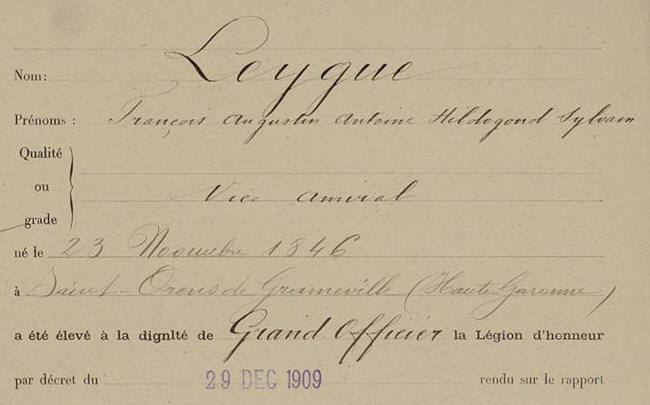 Nom: Leygue
Prénoms : François Augustin Antoine Hildegond Sylvain
Qualité
ou
grade
Vice amiral
né le 23 Novembre 1846
à Saint-Orens de Grameville (Haute Garonne)
a été élevé à la dignité de Grand Officier la Légion d'honneur
par décret du 29 DEC 1909 rendu sur le rapport